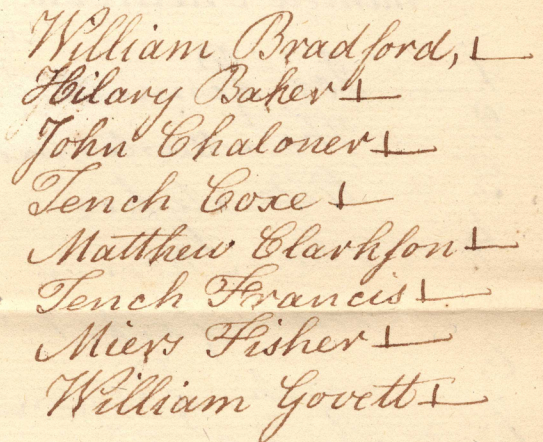 William Bradford,
Hilary Baker
John Chaloner
Tench Coxe
Matthew Clarkson
Tench Francis
Miers Fisher
William Govett